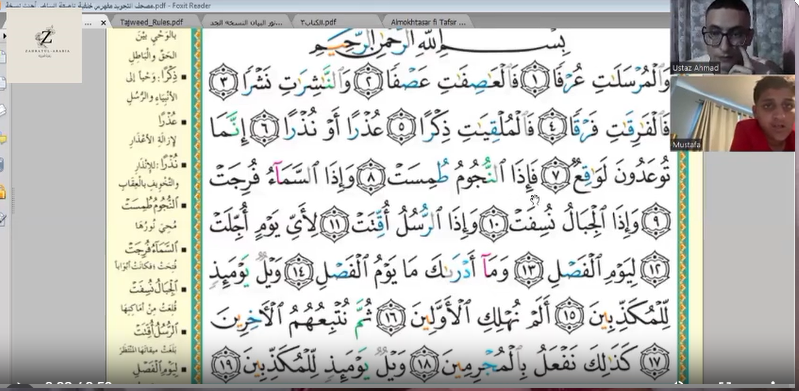 Foxit Reader
Tajweed_Rules.pdf
الكتاب٣.pdf
Almokhtasar fi Tafsir ...
ZAHRATUL ARABIA
Ustaz Ahmad
Mustafa
بِسْمِ ٱللَّهِ ٱلرَّحْمَٰنِ ٱلرَّحِيمِ
وَٱلْمُرْسَلَٰتِ عُرْفًا ١ فَٱلْعَٰصِفَٰتِ عَصْفًا ٢ وَٱلنَّٰشِرَٰتِ نَشْرًا ٣
فَٱلْفَٰرِقَٰتِ فَرْقًا ٤ فَٱلْمُلْقِيَٰتِ ذِكْرًا ٥ عُذْرًا أَوْ نُذْرًا ٦ إِنَّمَا
تُوعَدُونَ لَوَٰقِعٌ ٧ فَإِذَا ٱلنُّجُومُ طُمِسَتْ ٨ وَإِذَا ٱلسَّمَآءُ فُرِجَتْ
٩ وَإِذَا ٱلْجِبَالُ نُسِفَتْ ١٠ وَإِذَا ٱلرُّسُلُ أُقِّتَتْ ١١ لِأَىِّ يَوْمٍ أُجِّلَتْ
١٢ لِيَوْمِ ٱلْفَصْلِ ١٣ وَمَآ أَدْرَىٰكَ مَا يَوْمُ ٱلْفَصْلِ ١٤ وَيْلٌ يَوْمَئِذٍ
لِّلْمُكَذِّبِينَ ١٥ أَلَمْ نُهْلِكِ ٱلْأَوَّلِينَ ١٦ ثُمَّ نُتْبِعُهُمُ ٱلْآخِرِينَ
١٧ كَذَٰلِكَ نَفْعَلُ بِٱلْمُجْرِمِينَ ١٨ وَيْلٌ يَوْمَئِذٍ لِّلْمُكَذِّبِينَ ١٩
بالوحي بين
الحق والباطل
ذِكْرًا: وحيا إلى
الأنبياء والرسل
عُذْرًا
لإزالة الأعذار
نُذْرًا: للإنذار
والتخويف بالعقاب
النُّجُومُ طُمِسَتْ
محي نورها
السَّمَاءُ فُرِجَتْ
فتحت فكانت أبوابا
الْجِبَالُ نُسِفَتْ
قلعت من أماكنها
الرُّسُلُ أُقِّتَتْ
بلغت ميقاتها المنتظر
لِيَوْمِ الْفَصْلِ